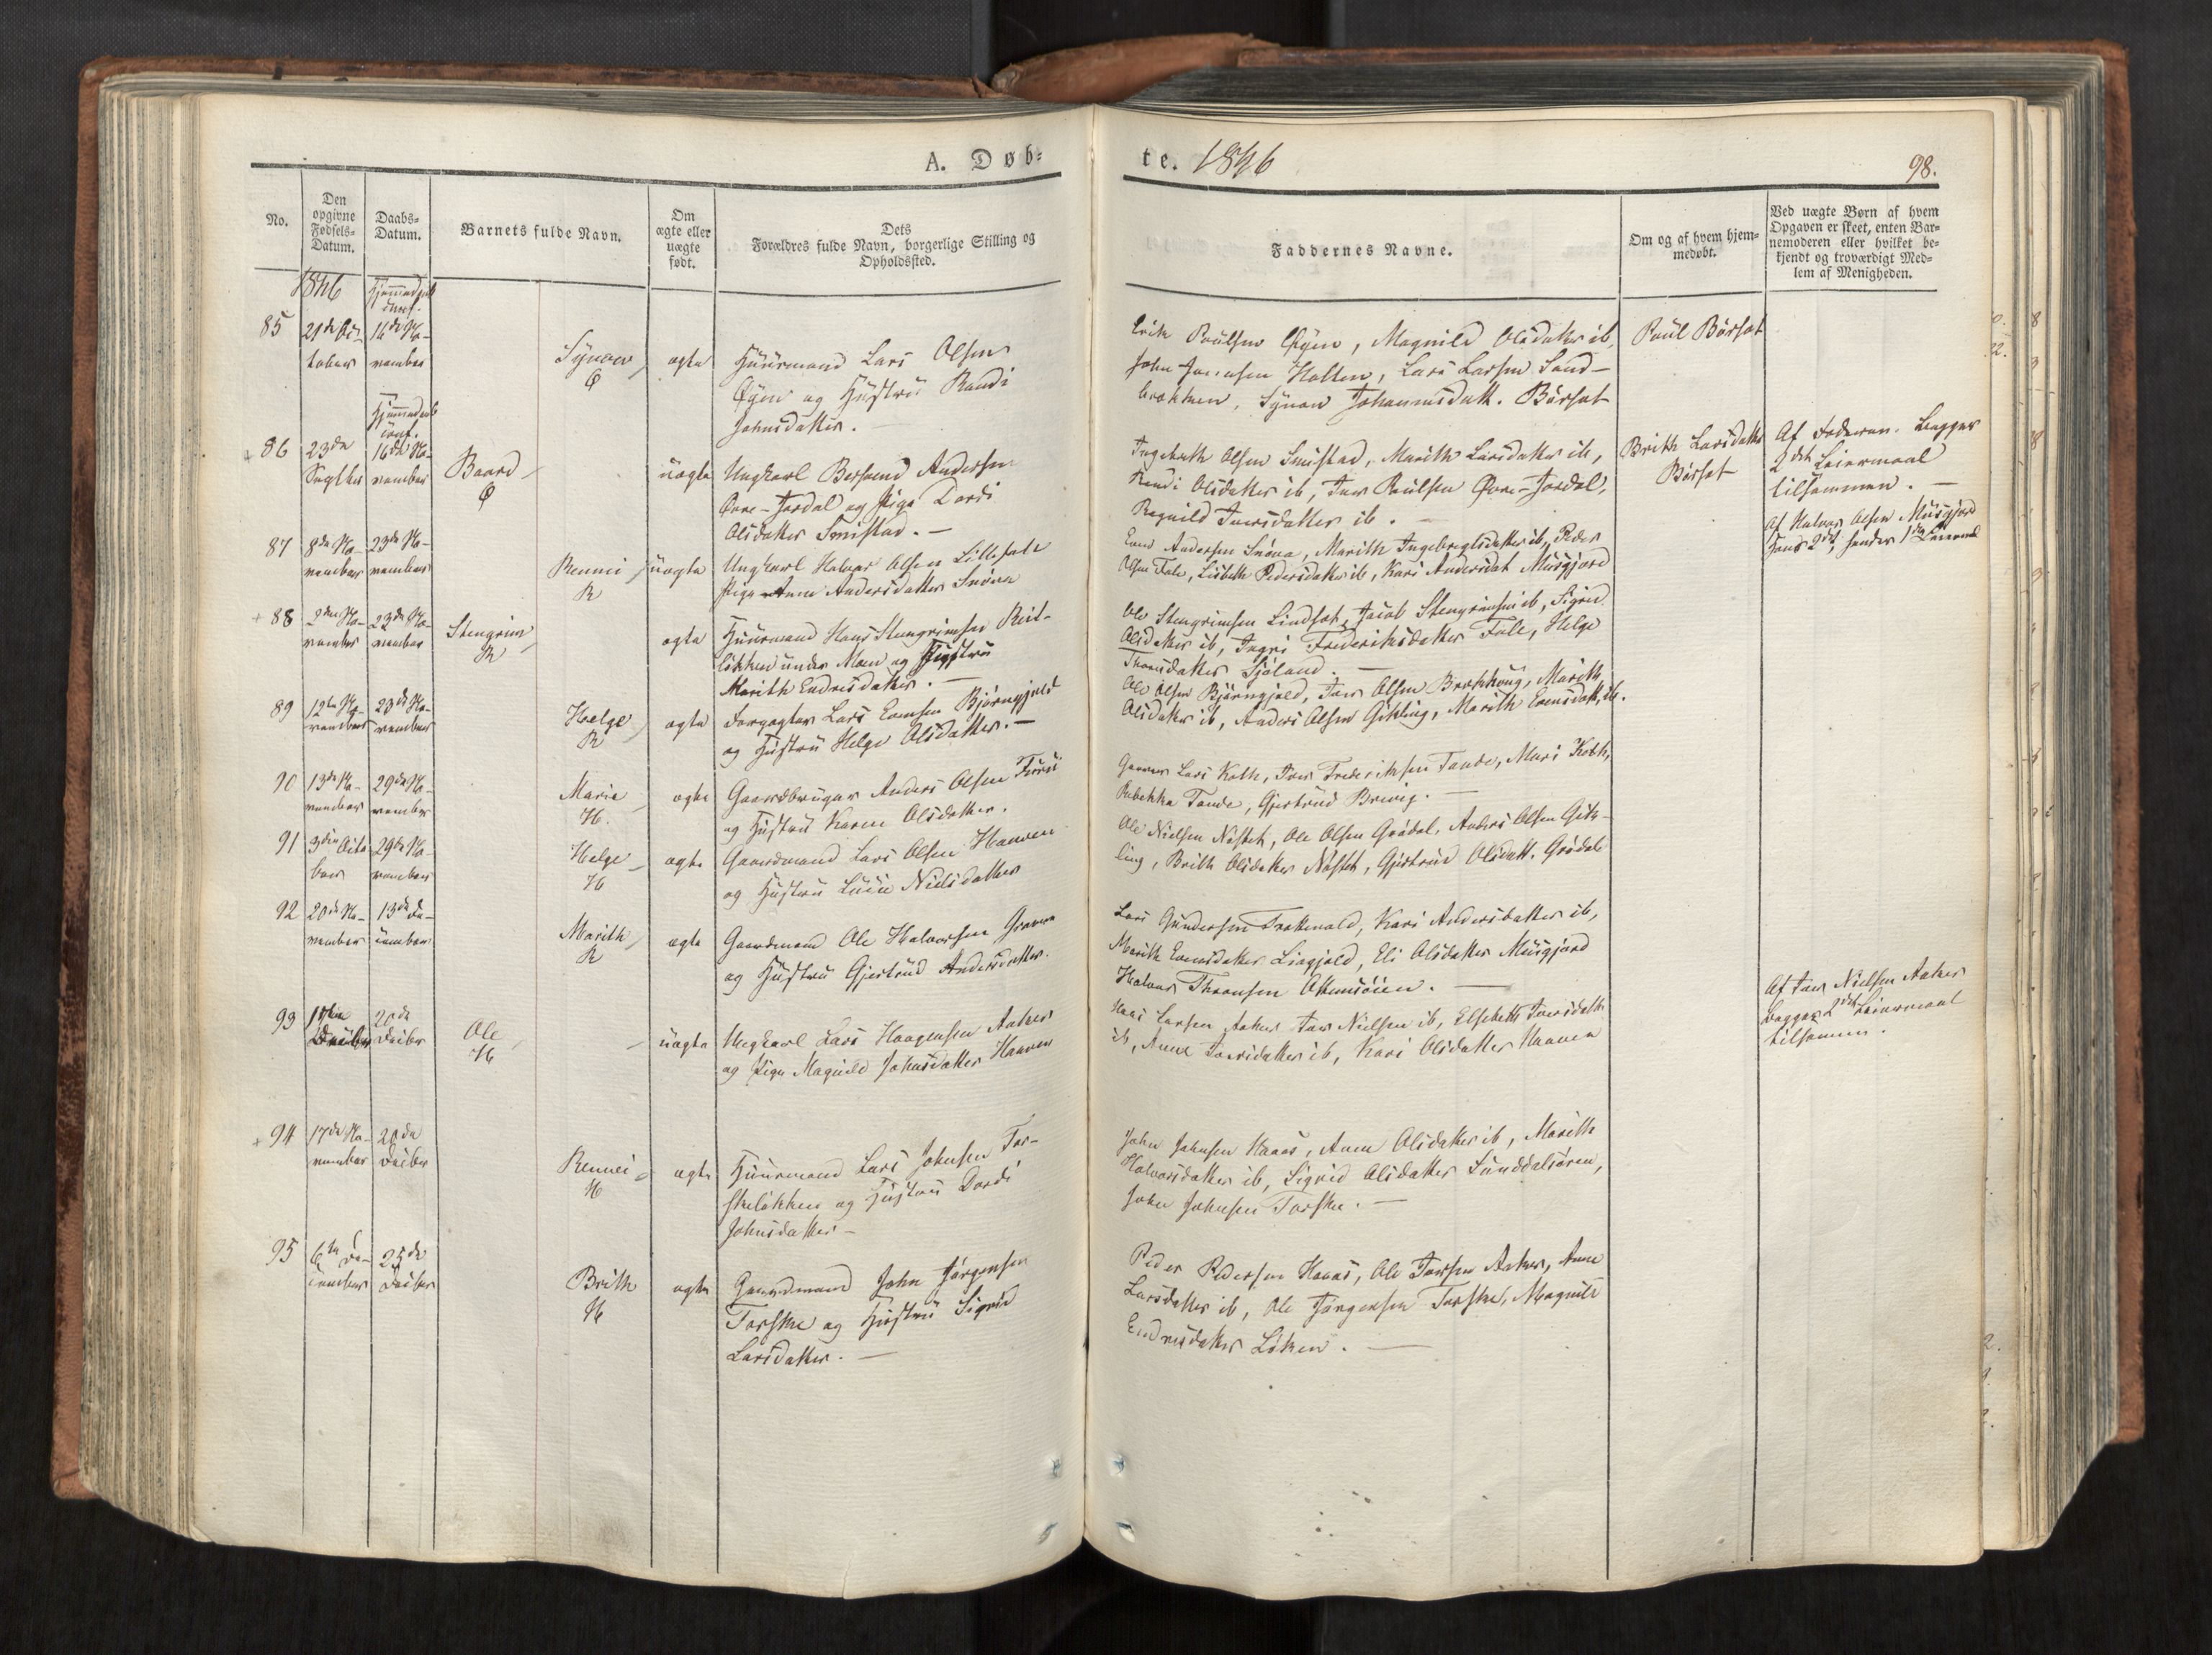 A. Døb=
te. 1846
98.
No.
Den
opgivne
Fødsels=
Datum.
Daabs=
Datum.
Barnets fulde Navn.
Om
ægte eller
uægte
født.
Dets
Forældres fulde Navn, borgerlige Stilling og
Opholdssted.
Faddernes Navne.
Om og af hvem hjem=
medøbt.
Ved uægte Børn af hvem
Opgaven er skeet, enten Bar=
nemoderen eller hvilket be=
kjendt og troværdigt Med=
lem af Menigheden.
1846
Hjemmedøbt
conf.
85
21de Oc-
tober
16de No-
vember
Synov
Ø
ægte
Huusmand Lars Olsen
Øyen og Hustru Randi
Johnsdatter.
Erik Poulsen Øyen, Magnild Olsdatter ib,
John Halten, Lars Larsen Sand-
brækken, Synov Johannisdatt. Børset
Poul Børset
Hjemmedøbt
conf.
86
23de
Septbr
16de No-
vember
Baard
Ø
uægte
Ungkarl Andersen
Øvre-Jordal og Pige Dordi
Olsdatter Smistad. —
Ingebrith Olsen Smistad, Marith Larsdatter ib,
Randi Olsdatter ib, Iver Poulsen Øvre-Jordal,
Ragnild Iversdatter ib.
Brith Larsdatter
Børset
Af Faderen. Begges
2det Leiermaal
tilsammen. —
87
8de No-
vember
23de No-
vember
Rennei
R
uægte
Ungkarl Halvor Olsen Lillefale
Pige Anne Andersdatter Snøva
Even Andersen Snøva, Marith Ingebrigtsdatter ib, Peder
Olsen Fale, Lisbeth Pedersdatter ib, Kari Andersdat Musgjerd
Af Halvor Olsen Musgjerd
Hans 2det, hendes 1ste Leiermaal
88
2den No-
vember
23de No-
vember
Stengrim
R
ægte
Huusmand Hans Stengrimsen Reit-
løkken under Moen og Hustru
Marith Endresdatter. —
Ole Stengrimsen Lindset, Jacob Stengrimsen ib, Sigrid
Olsdatter ib, Ingri Frederiksdatter Fale, Helge
Thoersdatter Sjøland. —
89
12te No-
vember
23de No-
vember
Helge
R
ægte
Forpagter Lars Evensen Bjørngjeld
og Hustru Helge Olsdatter. —
Ole Olsen Bjørngjeld, Iver Olsen Brækhaug, Marith
Olsdatter ib, Anders Olsen Gikling, Marith Evensdatt. ib.
90
13de No-
vember
29de No-
vember
Marie
H.
ægte
Gaardbruger Anders Olsen Furu
og Hustru Karen Olsdatter.
Lars Koth, Iver Frederiksen Tande, Mari Koth,
Rebekka Tande, Gjertrud Brevig. —
91
3die Octo
ber
29de No-
vember
Helge
H
ægte
Gaardmand Lars Olsen Haaven
og Hustru Lucie Nielsdatter
Ole Nielsen Nisstet, Ole Olsen Grødal, Anders Olsen Gik-
ling, Brith Olsdatter Nisstet, Gjertrud Olsdatt. Grødal
92
20de No-
vember
13de De-
cember
Marith
R
ægte
Gaardmand Ole Halvorsen Graven
og Hustru Gjertrud Andersdatter.
Lars Gundersen Trættevold, Kari Andersdatter ib,
Marith Evensdatter Liagjeld, Eli Olsdatter Musgjerd
Halvor Thoersen Ottemsøien. —
93
Decbr
20de
Decbr
Ole
H
uægte
Ungkarl Lars Haagensen Aaker
og Pige Magnild Johnsdatter Haaven
Larsen Aaker Iver Nielsen ib, Elsebeth Iversdatt
ib, Anne Iversdatter ib, Kari Olsdatter Haaven
Af Iver Nielsen Aaker
begges 2det Leiermaal
tilsammen.
94
17de No-
vember
20de
Decbr
Rennei
H
ægte
Huusmand Lars Johnsen Tor-
skeløkken og Hustru Dordi
Johnsdatter —
John Johnsen Haaes, Anne Olsdatter ib, Marith
Halvorsdatter ib, Sigrid Olsdatter Sunddalsøren,
John Johnsen Torske. —
95
6te De-
cember
25de
Decber
Brith
H
ægte
Gaardmand John Jørgensen
Torske og Hustru Sigrid
Larsdatter. —
Peder Pedersen Haaes, Ole Iversen Aaker, Anne
Larsdatter ib, Ole Jørgensen Torske, Magnild
Endresdatter Løken. —